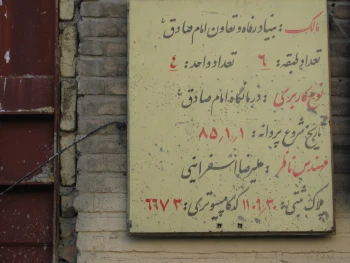 مالک: بنیاد رفاه و تعاون امام صادق
تعداد طبقه: ۶ تعداد واحد: ٤
نوع کاربری: درمانگاه امام صادق
تاریخ شروع پروانه: ۸۵/۱/۱
مهندس ناظر: علیرضا اسفراینی
پلاک ثبتی: ۱۱۰۹/۳۰ کد کامپیوتری: ۶۶۷۳